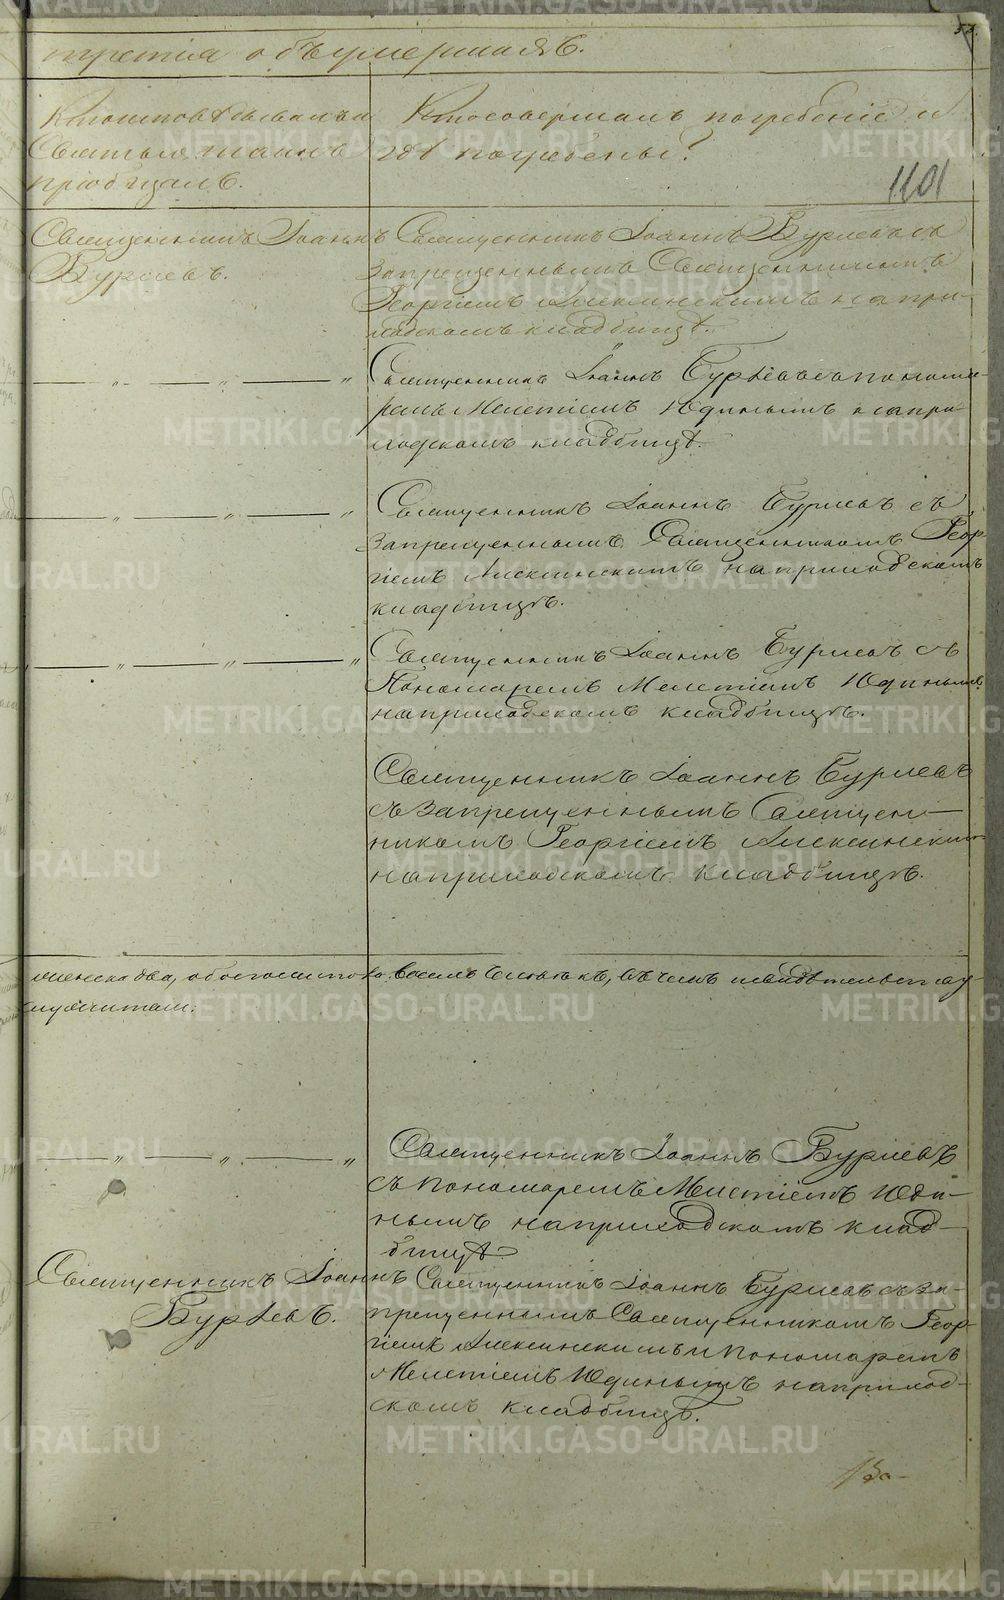 третія о бъумершихъ.
Кто исповѣдывалъ и
Святыхъ таинъ
пріобщалъ.
Кто совершалъ погребеніе и
гдѣ погребены?
1101
Священникъ Іоаннъ
Бурлевъ.
Священникъ Іоаннъ Бурлевъ съ
запрещеннымъ Священникомъ
Георгіемъ Алексинскимъ на при-
ходскомъ кладбищѣ.
— „ — „ — „
Священникъ Іоаннъ Бурлевъ съ понома-
ремъ Мелетіемъ Юдинымъ на при-
ходскомъ кладбищѣ.
— „ — „ — „
Священникъ Іоаннъ Бурлевъ съ
запрещеннымъ Священникомъ Геор-
гіемъ Алексинскимъ на приходскомъ
кладбищѣ.
— „ — „ — „
Священникъ Іоаннъ Бурлевъ съ
Пономаремъ Мелетіемъ Юдинымъ
на приходскомъ кладбищѣ.
Священникъ Іоаннъ Бурлевъ
съ запрещеннымъ Священ-
никомъ Георгіемъ Алексинскимъ
на приходскомъ кладбищѣ.
женска два, обоего пола восемь человѣкъ, въ чемъ и свидѣтельствуемъ
— „ — „ — „
Священникъ Іоаннъ Бурлевъ
съ пономаремъ Мелетіемъ Юди-
нымъ на приходскомъ клад-
бищѣ.
Священникъ Іоаннъ
Бурлевъ.
Священникъ Іоаннъ Бурлевъ съ за-
прещеннымъ Священникомъ Геор-
гіемъ Алексинскимъ и пономаремъ
Мелетіемъ Юдинымъ на приход-
скомъ кладбищѣ.
METRIKI.GASO-URAL.RU